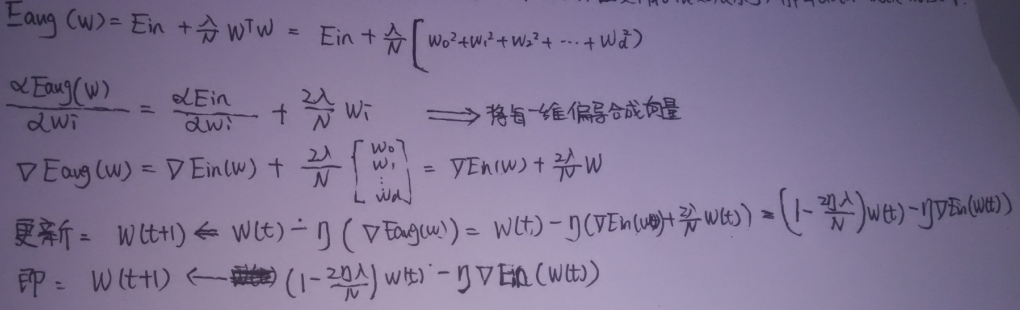 Eaug(w) = Ein + λ/N WᵀW = Ein + λ/N [w₀²+w₁²+w₂²+⋯+wd²)
αEaug(w)/αwi = αEin/αwi + 2λ/N wi ⟹ 将每一维偏导合成向量
∇Eaug(w) = ∇Ein(w) + 2λ/N [w₀ w₁ ⋮ wd] = ∇Ein(w) + 2λ/N W
更新= W(t+1) ← W(t) - η(∇Eaug(w)) = W(t) - η(∇Ein(w(t)) + 2λ/N W(t)) = (1 - 2ηλ/N) W(t) - η∇Ein(W(t))
即= W(t+1) ← (1 - 2ηλ/N) W(t) - η∇Ein(W(t))